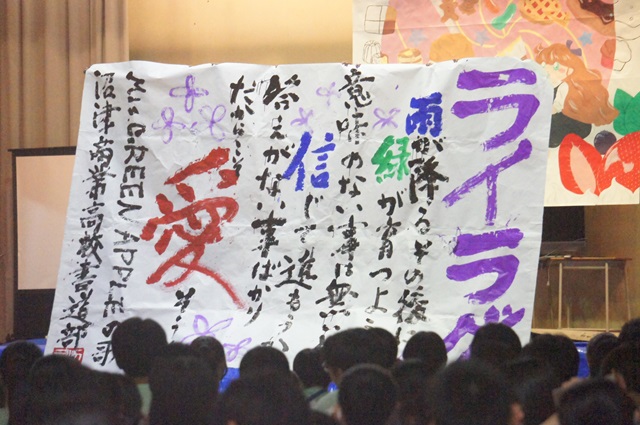 ライラック
雨が降るその後に
緑が育つよう
意味のない事は無い
信じて進もうか
答えがない事ばかり
だからこそ
愛そう
Mrs.GREEN APPLEの歌
沼津商業高校書道部